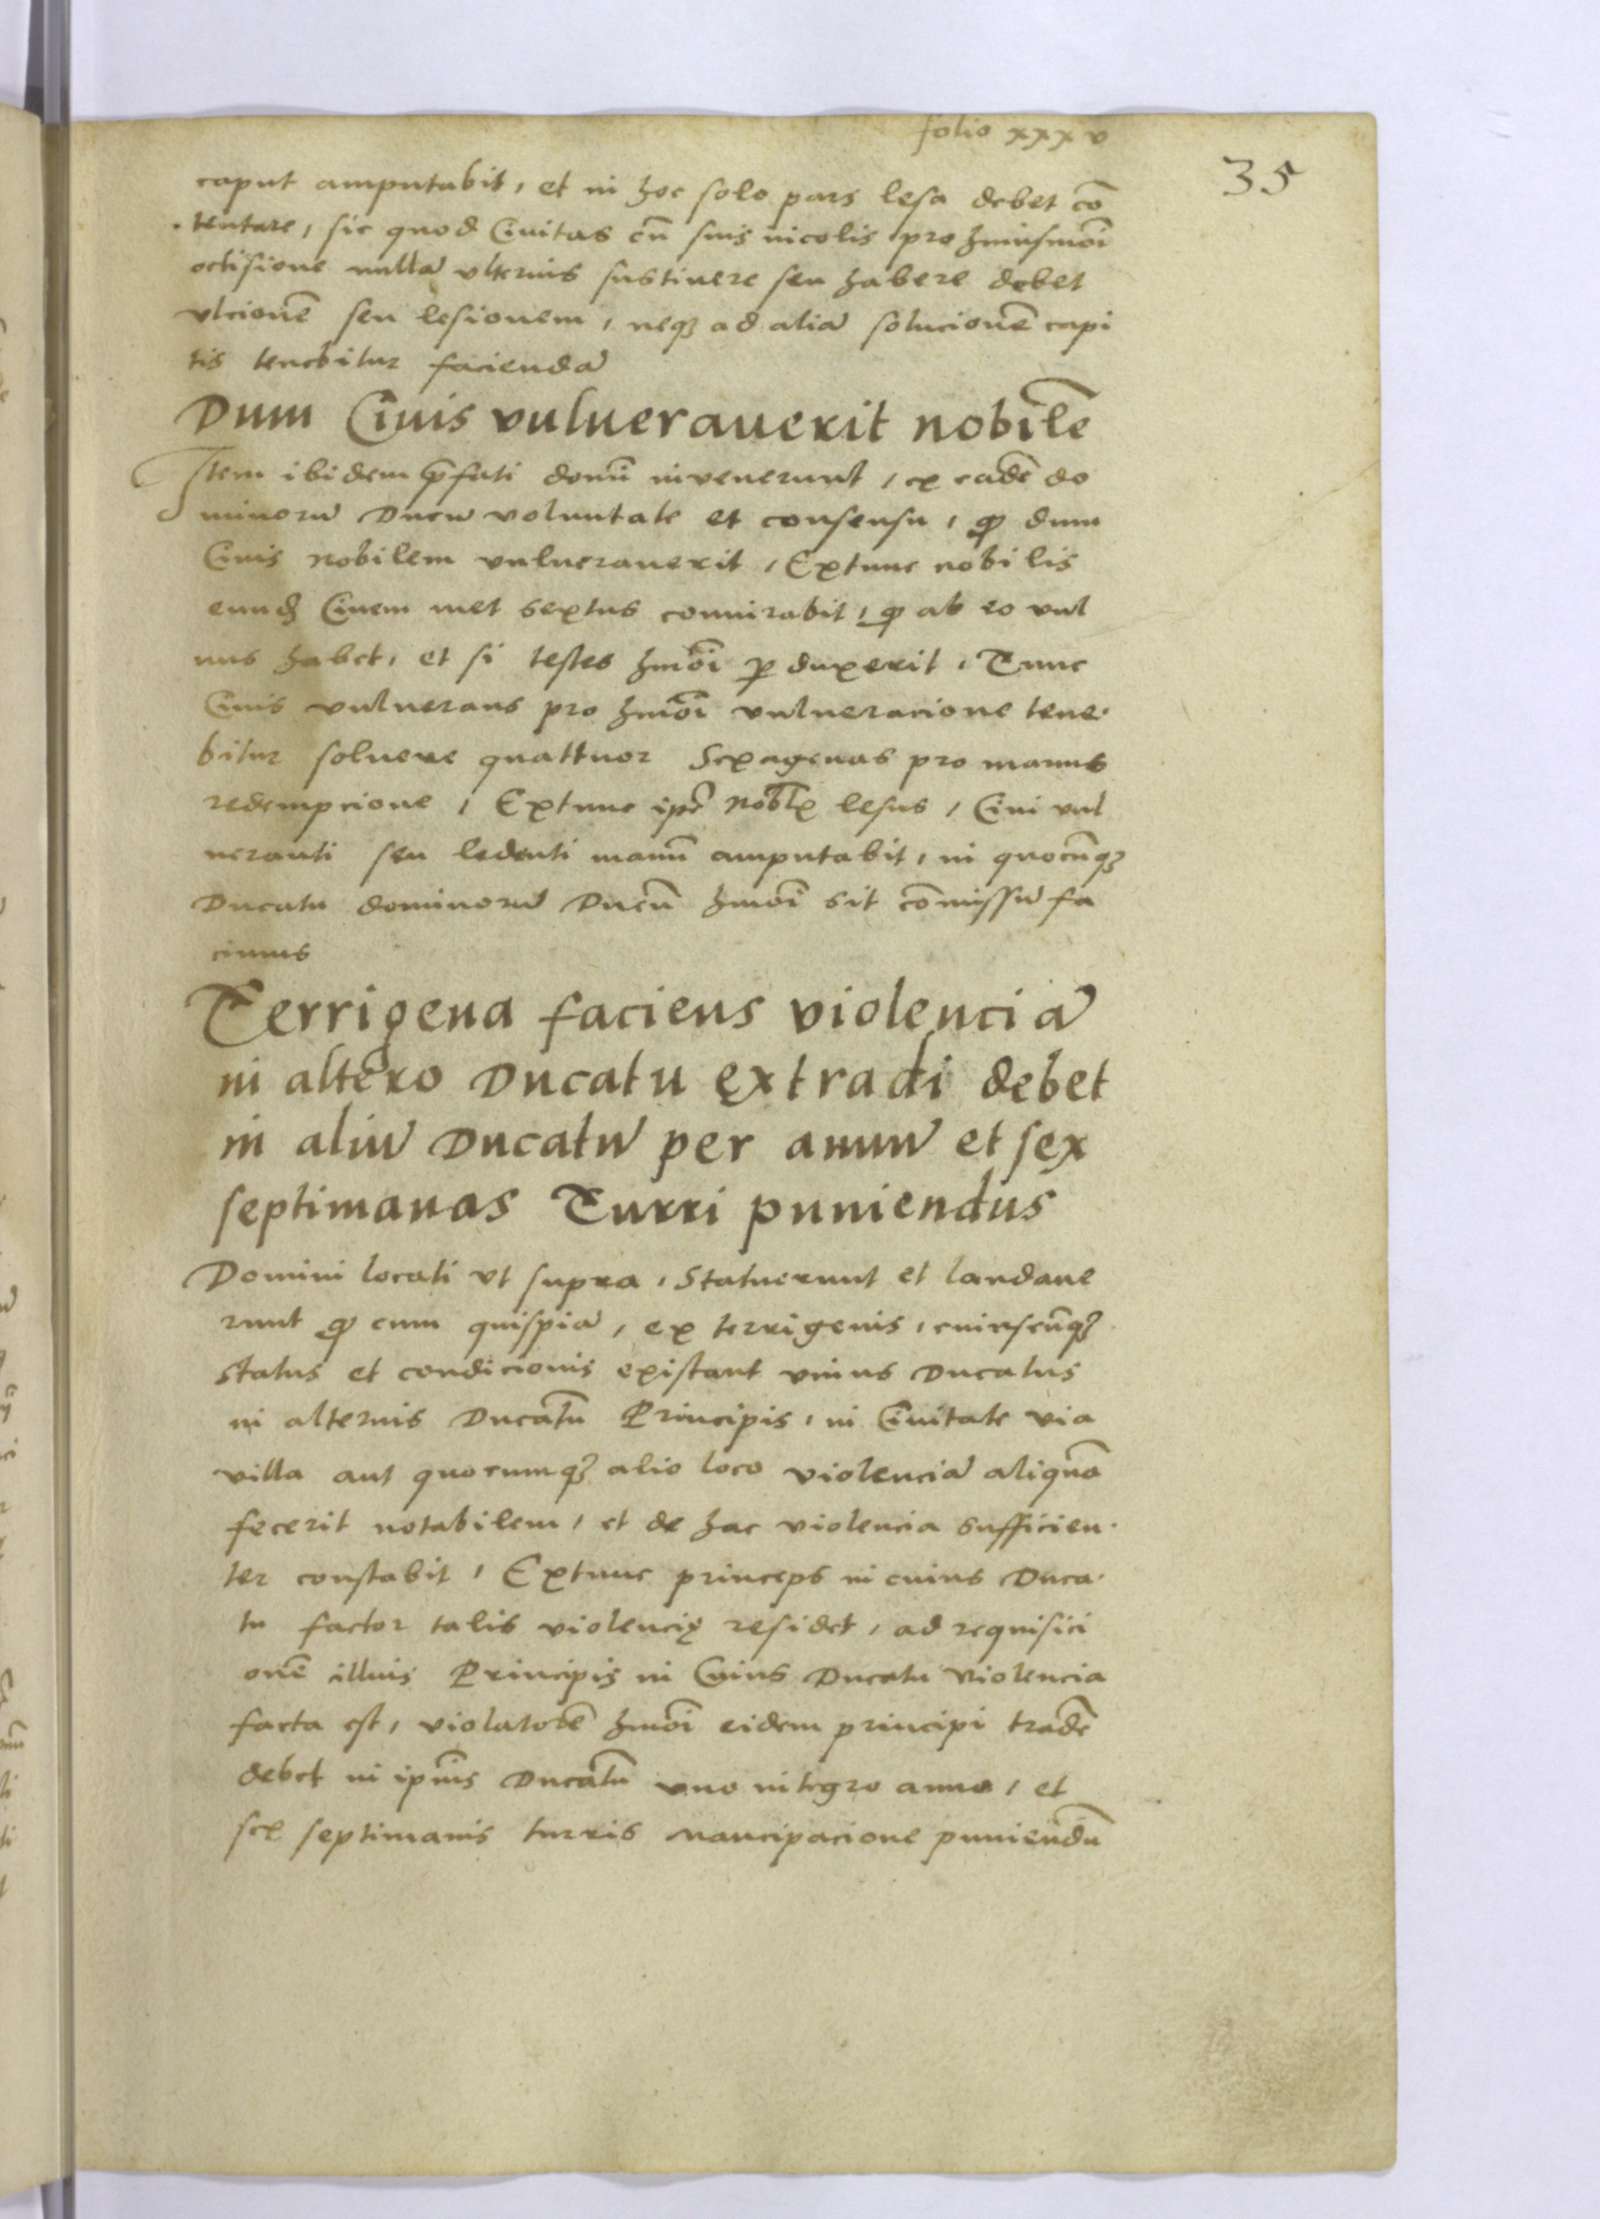 folio xxxv
35
caput amputabit, et in hoc solo pars lesa debet cō
tentare, sic quod Ciuitas cū suis incolis pro huiusmōi
occisione nullā vlterius sustinere seu habere debet
vlcionē seu lesionem, neqꝫ ad aliā solucionē capi
tis tenebitur faciendā
Dum Ciuis vulnerauerit nobilē
Item ibidem p̄fati domī invenerunt, ex eadē do
minorū Ducū voluntate et consensu, ꝙ dum
Ciuis nobilem vulnerauerit, Extunc nobilis
eundꝫ Ciuem met sextus conuirabit, ꝙ ab eo vul
nus habet, et si testes hmōi ꝓduxerit, Tunc
Ciuis vulnerans pro hmōi vulneracione tene-
bitur soluere quattuor Sexagenas pro manus
redempcione, Extunc ipē nobl̄ lesus, Ciui vul
neranti seu ledenti manū amputabit, in quocūqꝫ
Ducatu dominorū Ducū hmōi sit cōmissū fa
cinus
Terrigena faciens violenciā
in altero Ducatu extradi debet
in aliū Ducatū per annū et sex
septimanas Turri puniendus
Domini locati vt supra, Statuerunt et laudaue
runt ꝙ cum quispiā, ex terrigenis, cuiuscūqꝫ
status et condicionis existant vnius Ducatus
in alterius Ducatū Principis, in Ciuitate via
villa aut quocumqꝫ alio loco violenciā aliquā
fecerit notabilem, et de hac violencia sufficien-
ter constabit, Extunc princeps in cuius Duca-
tu factor talis violencię residet, ad requisici
onē illius Principis in Cuius Ducatu violencia
facta est, violatorē hmōi eidem principi tradē
debet in ipīus Ducatū vno integro anno, et
sex septimanis turris mancipacione puniendū